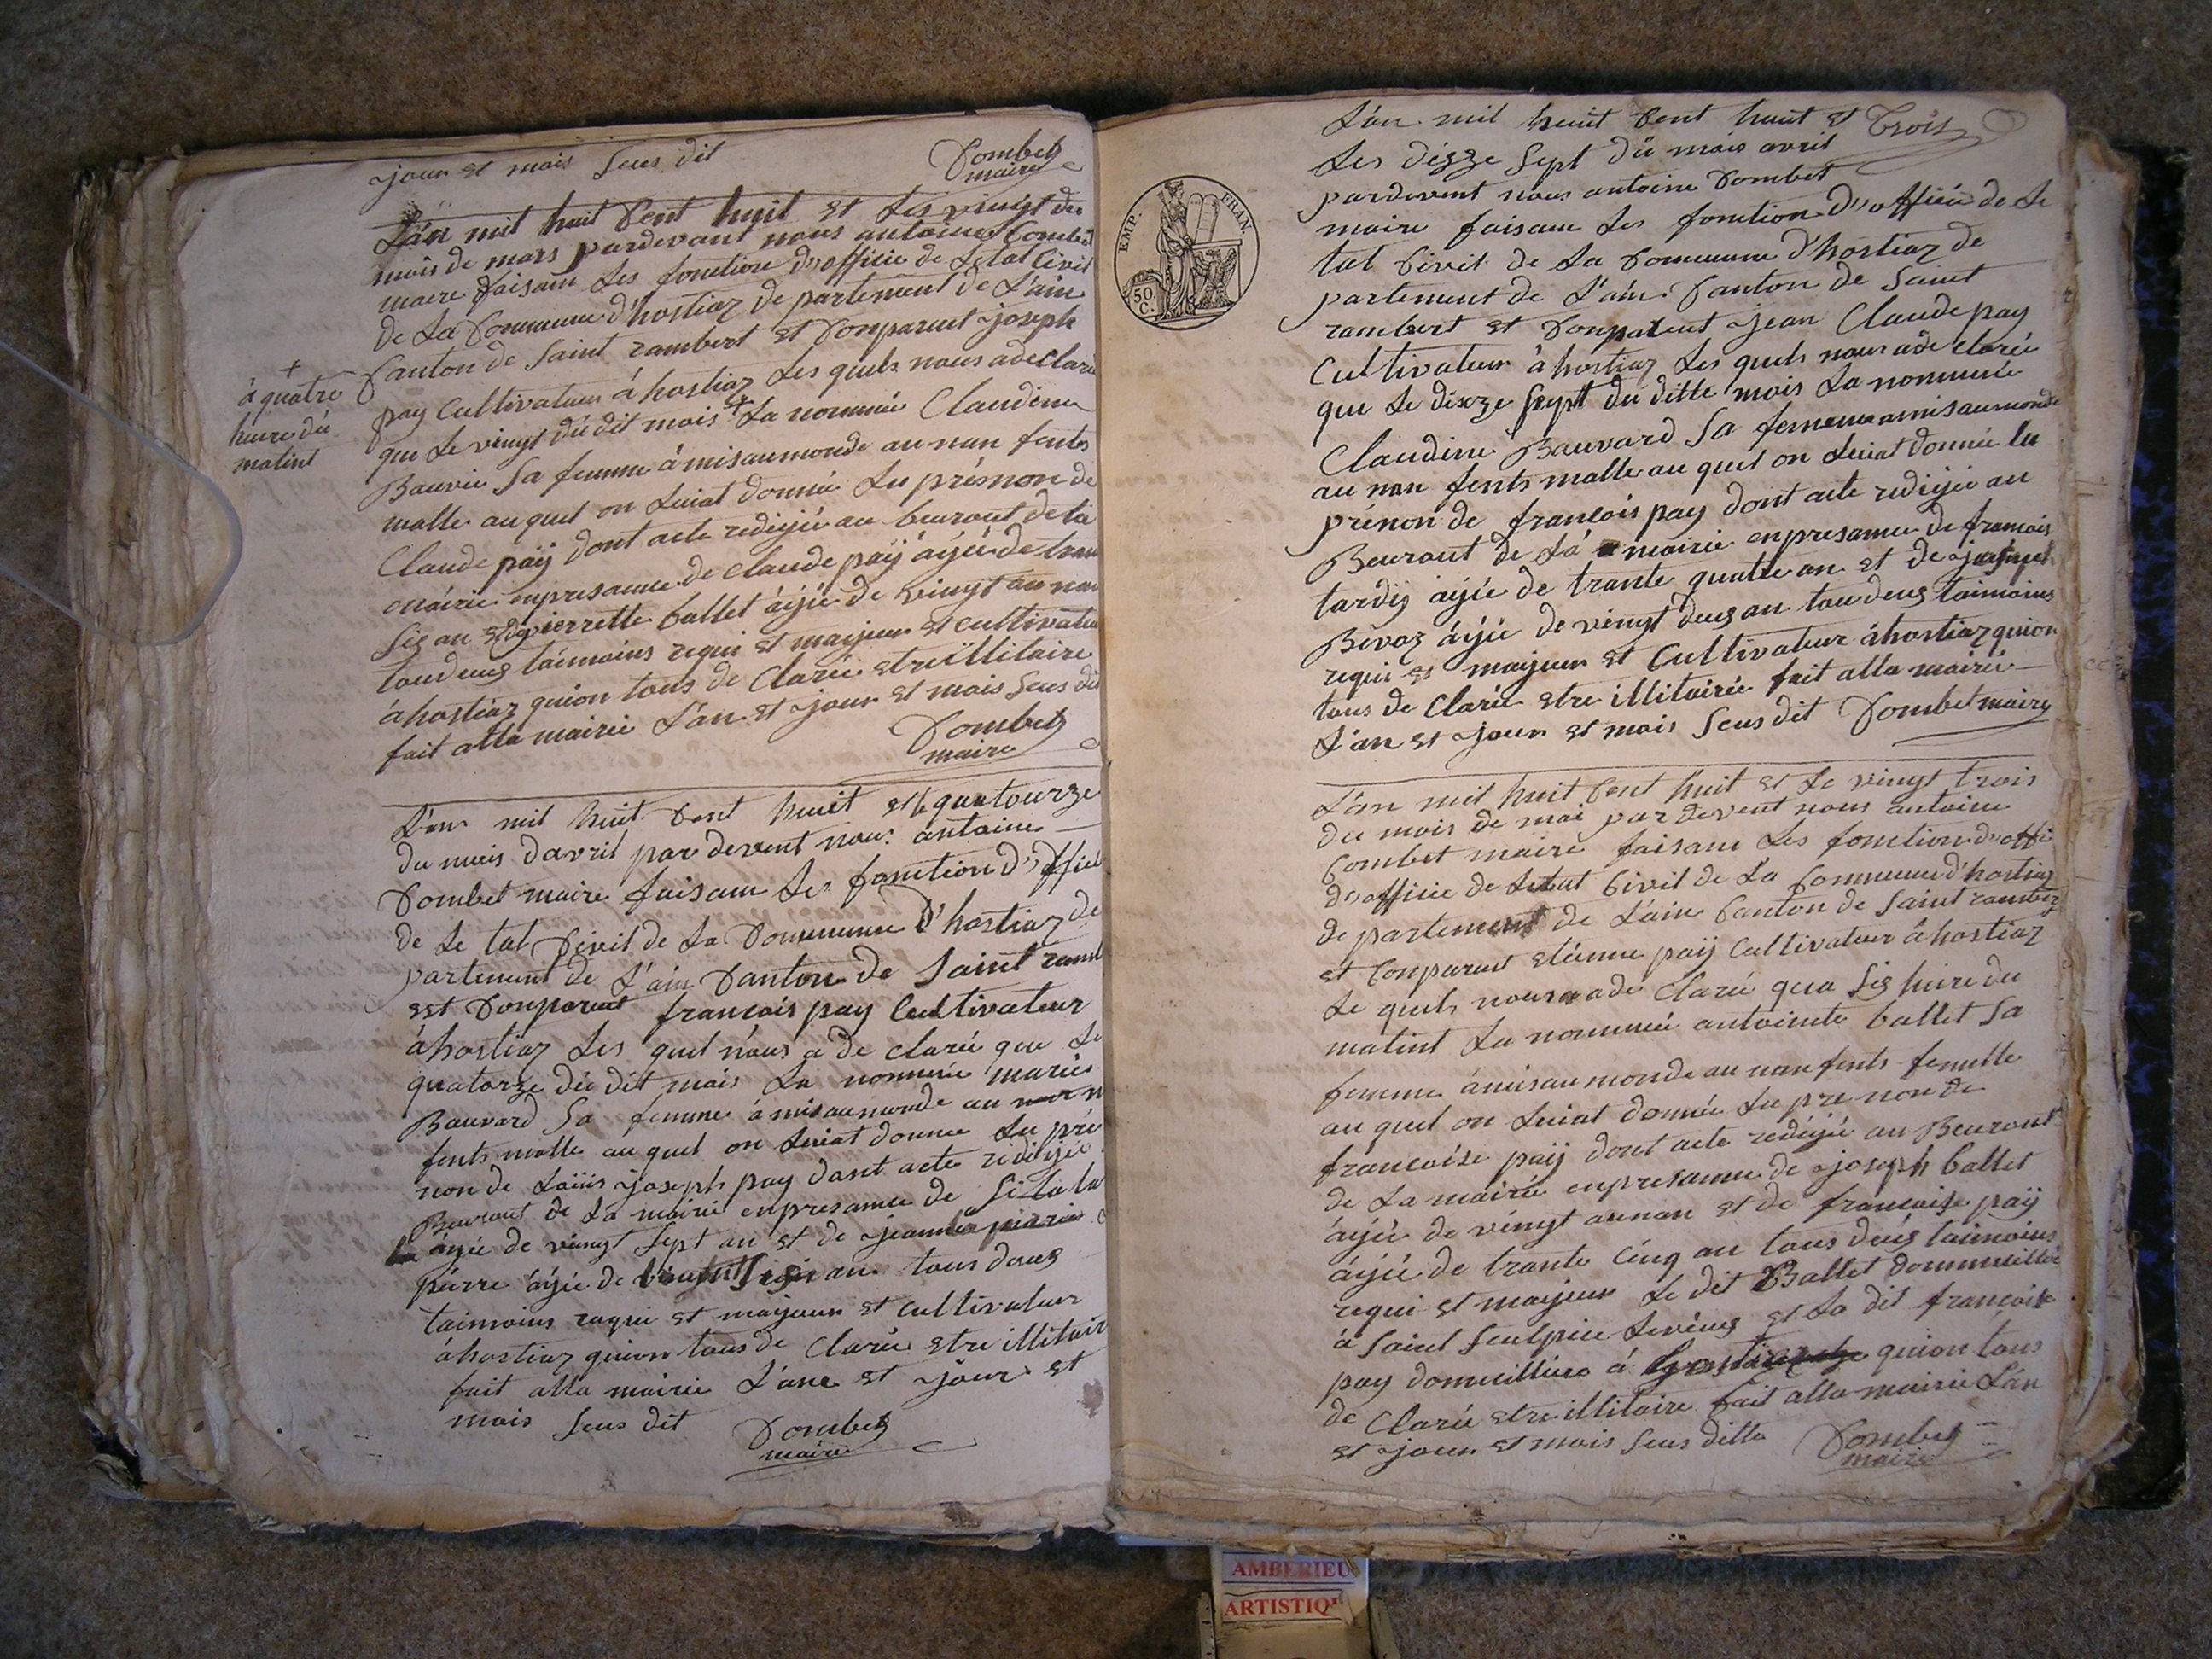 jour et mois Seus dit Combet
maire
L'an mil huit Cent huit et Les vingt du
mois de mars pardevant nous antoine Combet
maire faisam Les fonction d'officie de Letat Civil
de La Commune d'hostiaz de partement de L'ain
Canton de Saint rambert et Conparut joseph
pay Cultivateur à hostiaz Les quels nous a de Claré
+
à quatre
heure du
matint
que Le vingt du dit mois + La nommée Claudine
Bauvie Sa femme à mis au monde au nan fents
malle au quel on Luiat donnée Le prénon de
Claude paÿ dont acte redigée au beurout de la
mairie enpresance de Claude paÿ âgée de trante
Sis an et de pierrette ballet âgée de vingt au nan
tou deus taimoins requi et majeur et cultivateur
à hostiaz quion tous de Clarée etre illitaire
fait alla mairie L'an et jour et mois Seus dit
Combet
maire
L'an mil huit Cent huit et le quatourze
du mois davril par devent nous antoine
Combet maire faisam Les fonction d'officie
de Le tat Civil de La Commune d'hostiaz de
partement de L'ain Canton de Saint ramb
est Conparut francois pay Cultivateur
à hostiaz Les quel nous a de Clarée que Le
quatorze du dit mois La nommée marie
Bauvard Sa femme à mis au monde au nan
fents malle au quel on Luiat donnee Le pré
non de Loüis joseph pay dont acte redigée
Beurout de La mairie enpresance de
âgée de vingt Sept an et de jeanne
pierre âgée de an tous deus
taimoins requi et majeur et cultivateur
à hostiaz quion tous de Clarée etre illitair
fait alla mairie L'ane et jour et
mois Seus dit Combet
maire
L'an mil huit Cent huit et Trois
Les dizze Sept du mois avril
pardevent nous antoine Combet
maire faisam Les fonction d'officie de Le
tat Civil de La Commune d'hostiaz de
partement de L'ain Canton de Saint
rambert et Conparut jean Claude pay
Cultivateur à hostiaz Les quels nous a de Clarée
que Le dixze Sept du ditte mois La nommée
Claudine Bauvard Sa femme a mis au monde
au nan fents malle au quel on Luiat donnée Le
prénon de francois pay dont acte redigée au
Beurout de La mairie enpresance de francois
tardÿ âgée de trante quatre an et de
Bevoz âgée de vingt deus an tou deus taimoins
requi et majeur et Cultivateur à hostiaz quion
tous de Clarée etre illitairée fait alla mairie
L'an et jour et mois Seus dit Combet maire
L'an mil huit Cent huit et Le vingt trois
du mois de mai par devent nous antoine
Combet maire faisam Les fonction d'offi
d'officie de Letat Civil de La Commune d'hostiaz
de partement de L'ain Canton de Saint rambert
et Conparut etienne paÿ Cultivateur à hostiaz
Le quels nous a de Clarée que a Sis heure du
matint La nommée antoinete ballet Sa
femme à mis au monde au nan fents femelle
au quel on Luiat donnée Le pre non de
francoise paÿ dont acte redigée au Beurout
de La mairie enpresance de joseph ballet
âgée de vingt au nan et de francoise paÿ
âgée de trante Cinq an tous deus taimoins
requi et majeur Le dit Ballet dommicillié
à Saint Seulpice Levieus et La dit francoise
pay domicilliée à quion tous
de Clarée etre illitaire fait alla mairie L'an
et jour et mois Seus ditte Combet
maire
EMP. FRAN.
50.
C.
AMBERIEU
ARTISTIQ